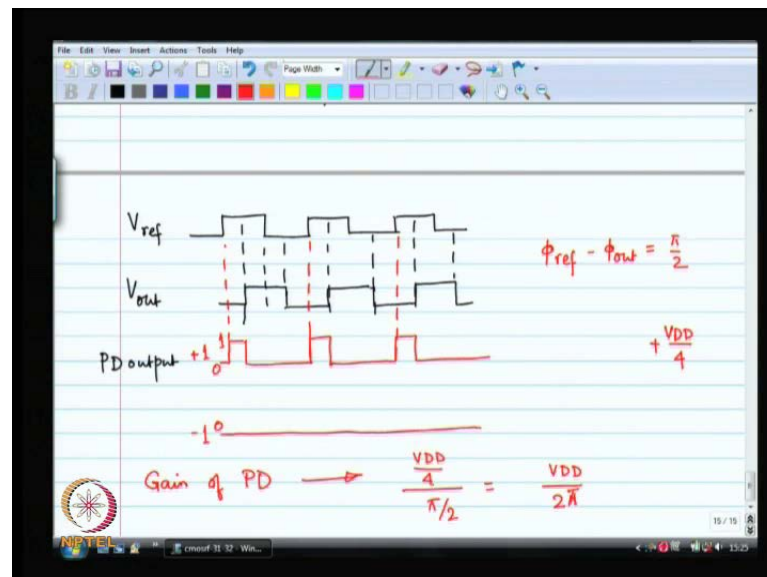 File Edit View Insert Actions Tools Help
Page Width
V ref
V out
PD output +1 1
0
-1 0
ϕref - ϕout = π/2
+ VDD/4
Gain of PD → (VDD/4)/(π/2) = VDD/2π
15 / 15
NPTEL
cmosrf-31-32 - Win...
15:25